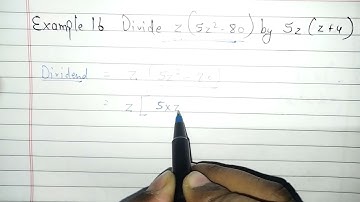 Example 16 Divide z(5z²-80) by 5z(z+4)
Dividend = z
= z[ 5×z